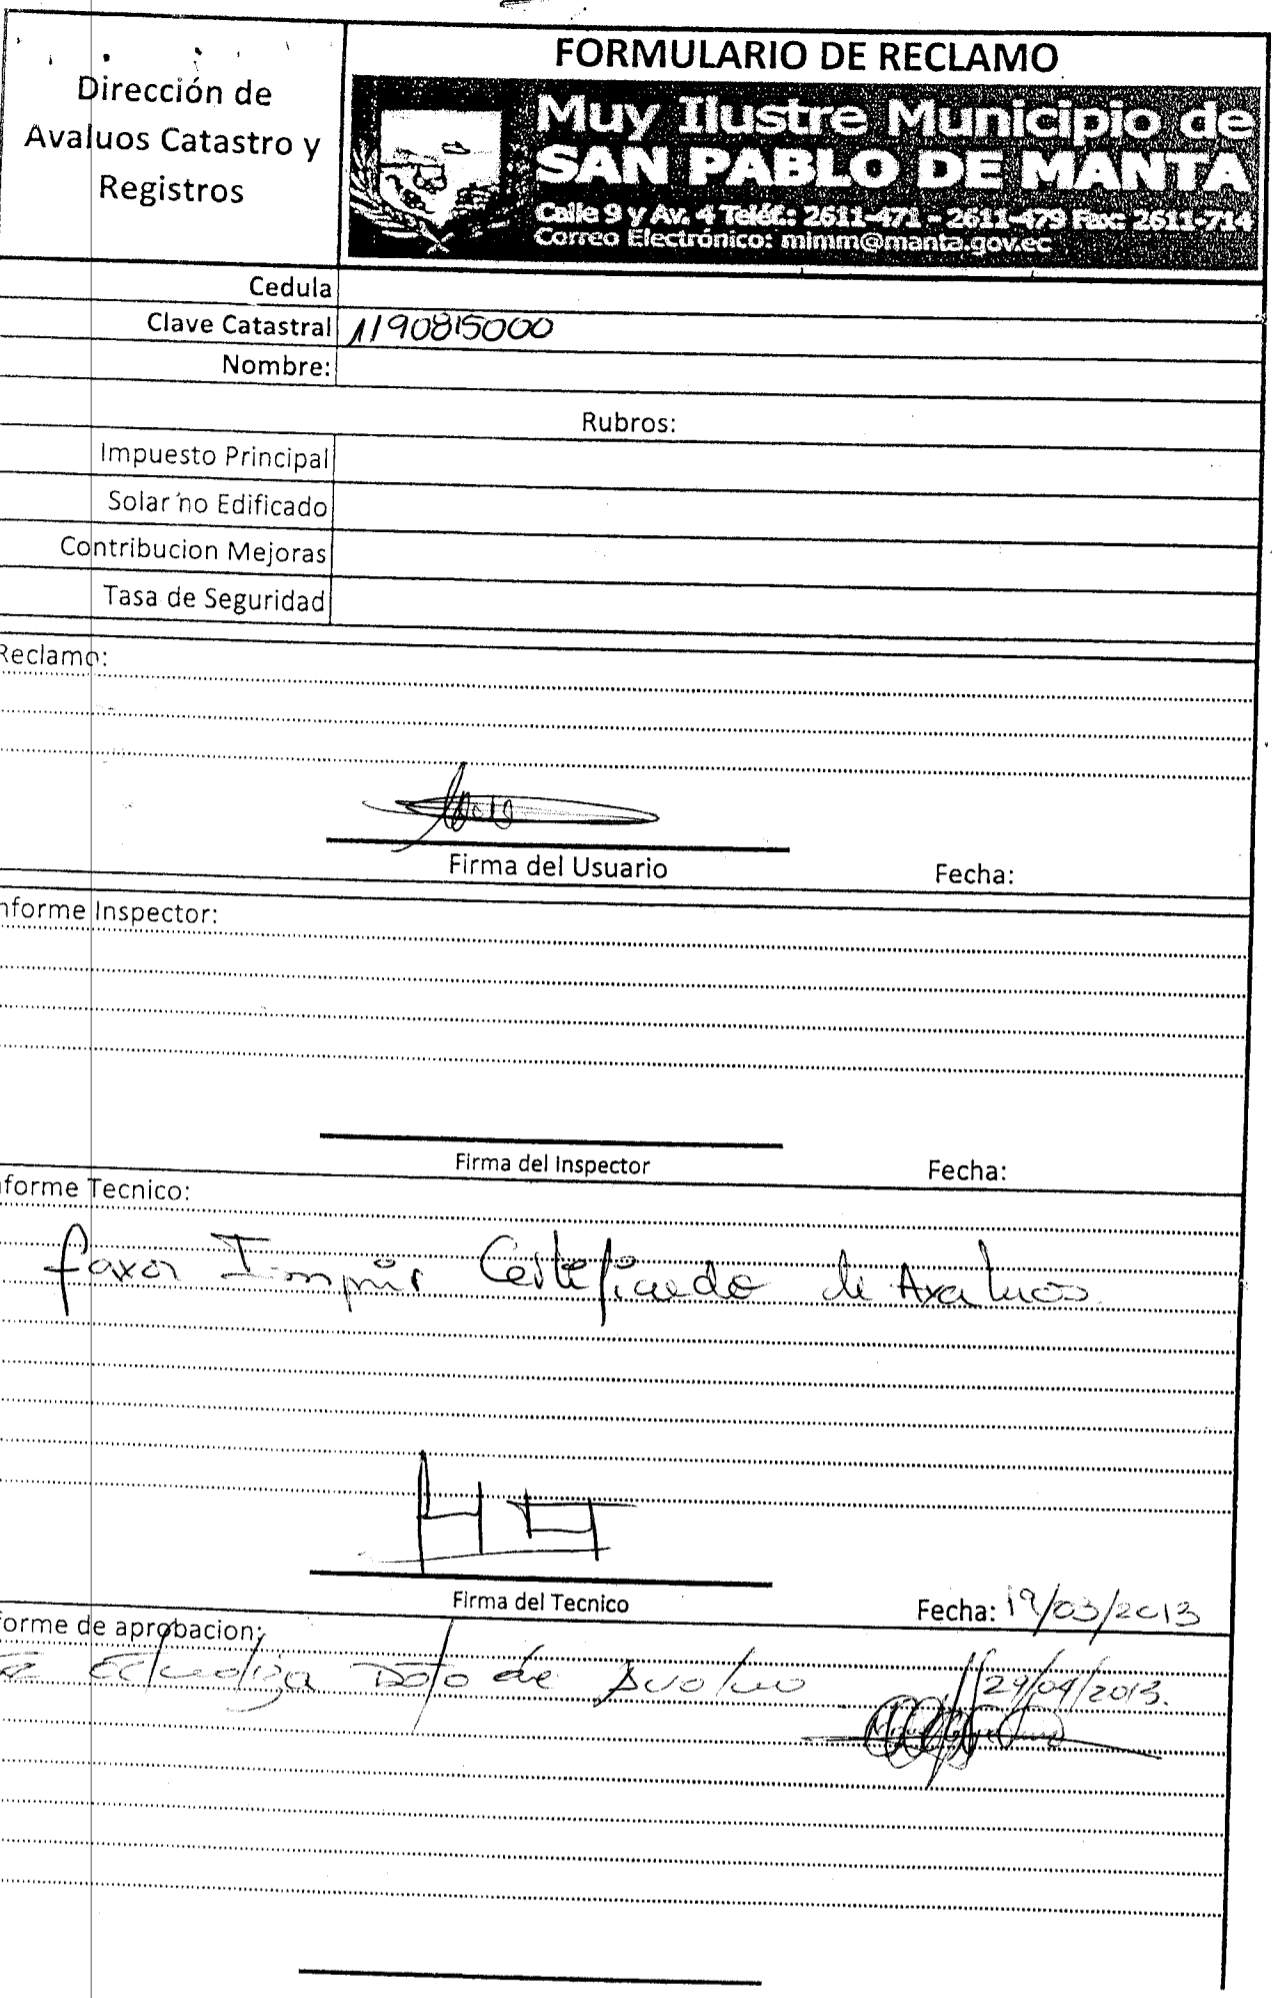 FORMULARIO DE RECLAMO
Dirección de
Avaluos Catastro y
Registros
Muy Ilustre Municipio de
SAN PABLO DE MANTA
Calle 9 y Av. 4 Teléf.: 2611-471 - 2611-479 Fax: 2611-714
Correo Electrónico: mimm@manta.gov.ec
Cedula
Clave Catastral 1190815000
Nombre:
Rubros:
Impuesto Principal
Solar no Edificado
Contribucion Mejoras
Tasa de Seguridad
Reclamo:
Firma del Usuario Fecha:
nforme Inspector:
Firma del Inspector Fecha:
nforme Tecnico:
favor Certificado de Avaluos
Firma del Tecnico Fecha: 19/03/2013
forme de aprobacion:
Dato de Avaluo 29/04/2013.